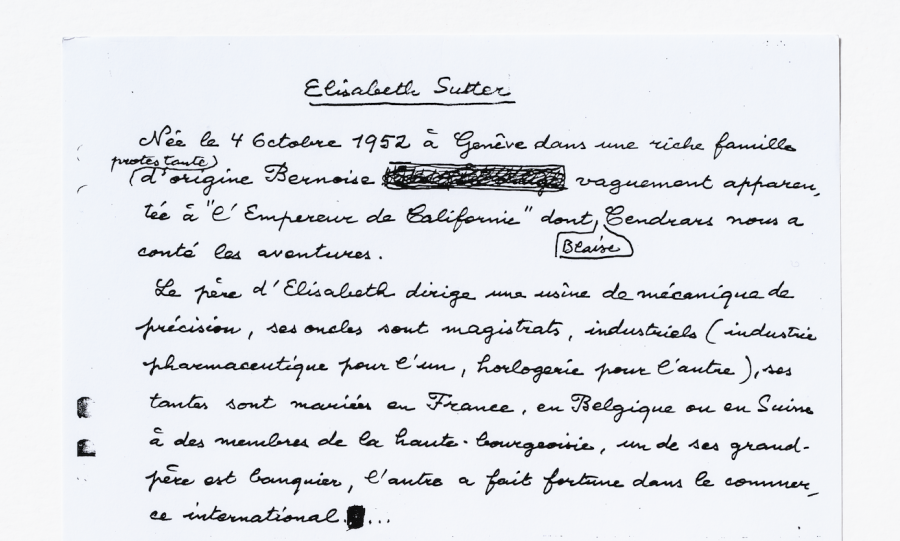 Elisabeth Sutter
Née le 4 Octobre 1952 à Genève dans une riche famille
protestante
d'origine Bernoise vaguement apparen-
tée à "l'Empereur de Californie" dont Cendrars nous a
Blaise
conté les aventures.
Le père d'Elisabeth dirige une usine de mécanique de
précision, ses oncles sont magistrats, industriels (industrie
pharmaceutique pour l'un, horlogerie pour l'autre), ses
tantes sont mariées en France, en Belgique ou en Suisse
à des membres de la haute-bourgeoisie, un de ses grand-
père est banquier, l'autre a fait fortune dans le commer-
ce international....